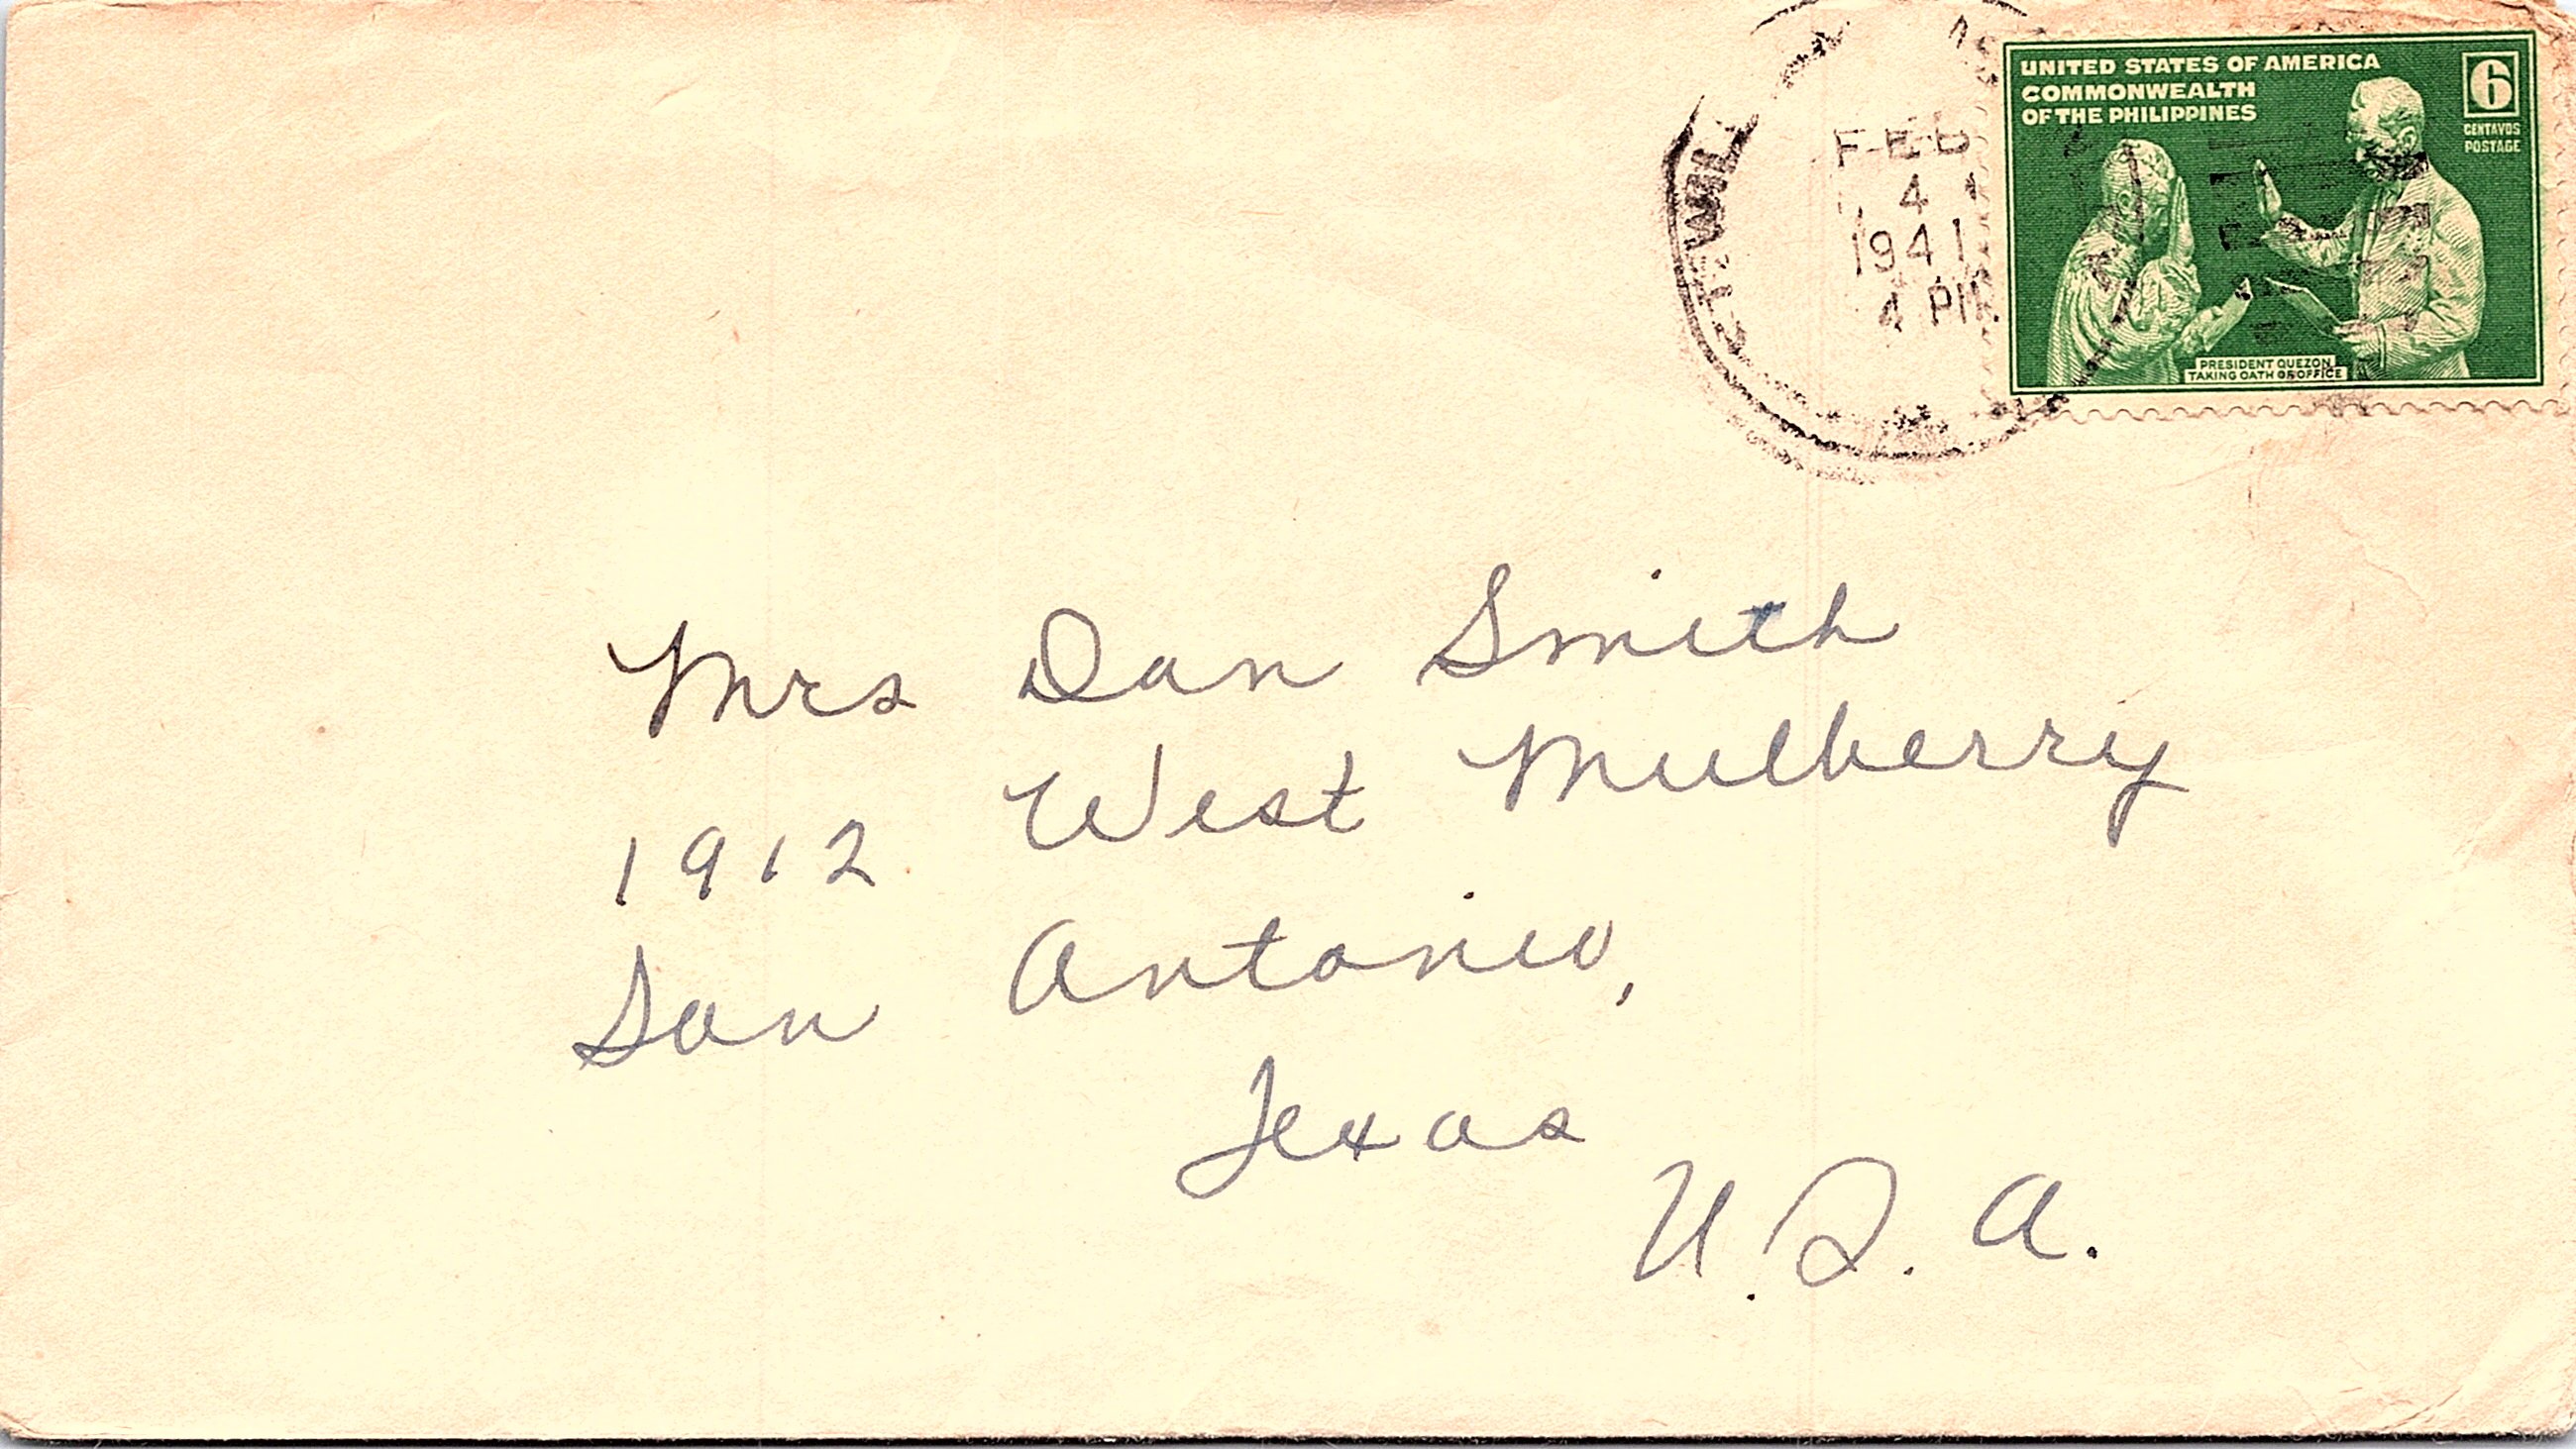 UNITED STATES OF AMERICA
COMMONWEALTH
OF THE PHILIPPINES
6
CENTAVOS
POSTAGE
PRESIDENT QUEZON
TAKING OATH OF OFFICE
FEB
4
1941
4 PM
Mrs Dan Smith
1912 West Mulberry
San Antonio,
Texas
U.S.A.